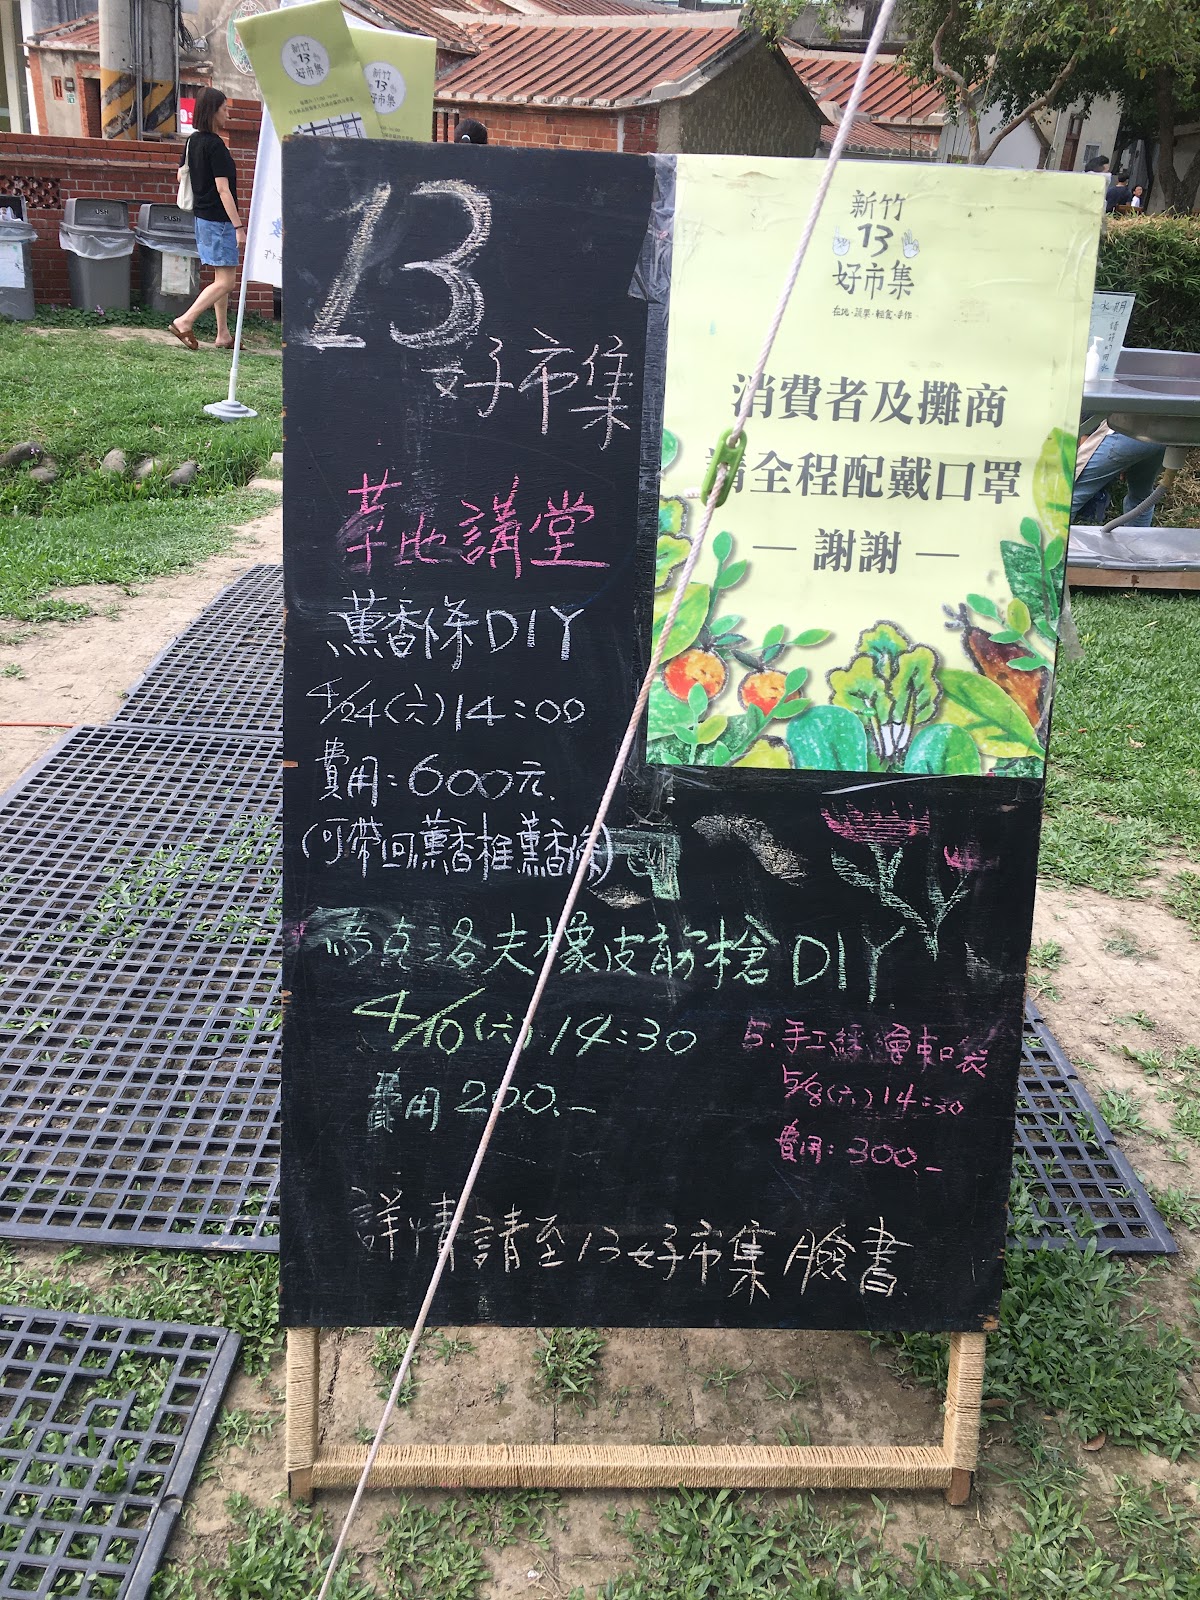 新竹
13
好市集
新竹
13
好市集
13
好市集
草地講堂
薰香條DIY
4/24(六)14:00
費用:600元.
(可帶回薰香椎薰香條)
馬克洛夫橡皮筋槍DIY
4/10(六)14:30
費用200.-
5.手工
5/8(六)14:30
費用:300.-
詳情請至13好市集臉書
新竹
13
好市集
在地·蔬果·輕食·手作
消費者及攤商
請全程配戴口罩
— 謝謝 —
PUSH
PUSH